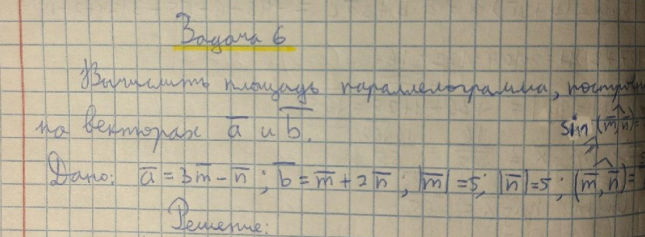 Задача 6
Вычислить площадь параллелограмма,
на векторах a̅ и b̅.
sin (m̅,n̅)=
Дано: a̅ = 3m̅ - n̅ ; b̅ = m̅ + 2n̅ ; |m̅| = 5; |n̅| = 5 ; (m̅, n̅) =
Решение: